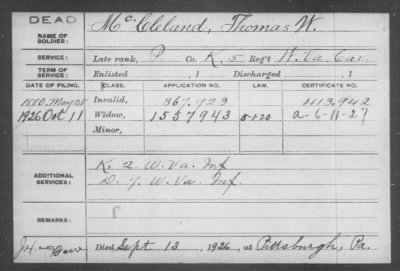 DEAD
NAME OF SOLDIER: McCleland, Thomas W.
SERVICE: Late rank, P. Co. K, 5 Reg't W. Va. Cav.
TERM OF SERVICE: Enlisted , 1 Discharged , 1
DATE OF FILING. CLASS. APPLICATION NO. LAW. CERTIFICATE NO.
1880. May 25 Invalid, 367,923 413,942
1926 Oct 11 Widow, 1557943 5-1-20 a-6-11-27
Minor,
ADDITIONAL SERVICES: K. 2 W. Va. Inf
D. 7 W. Va. Inf.
REMARKS:
Died Sept 13, 1926, at Pittsburgh, Pa.